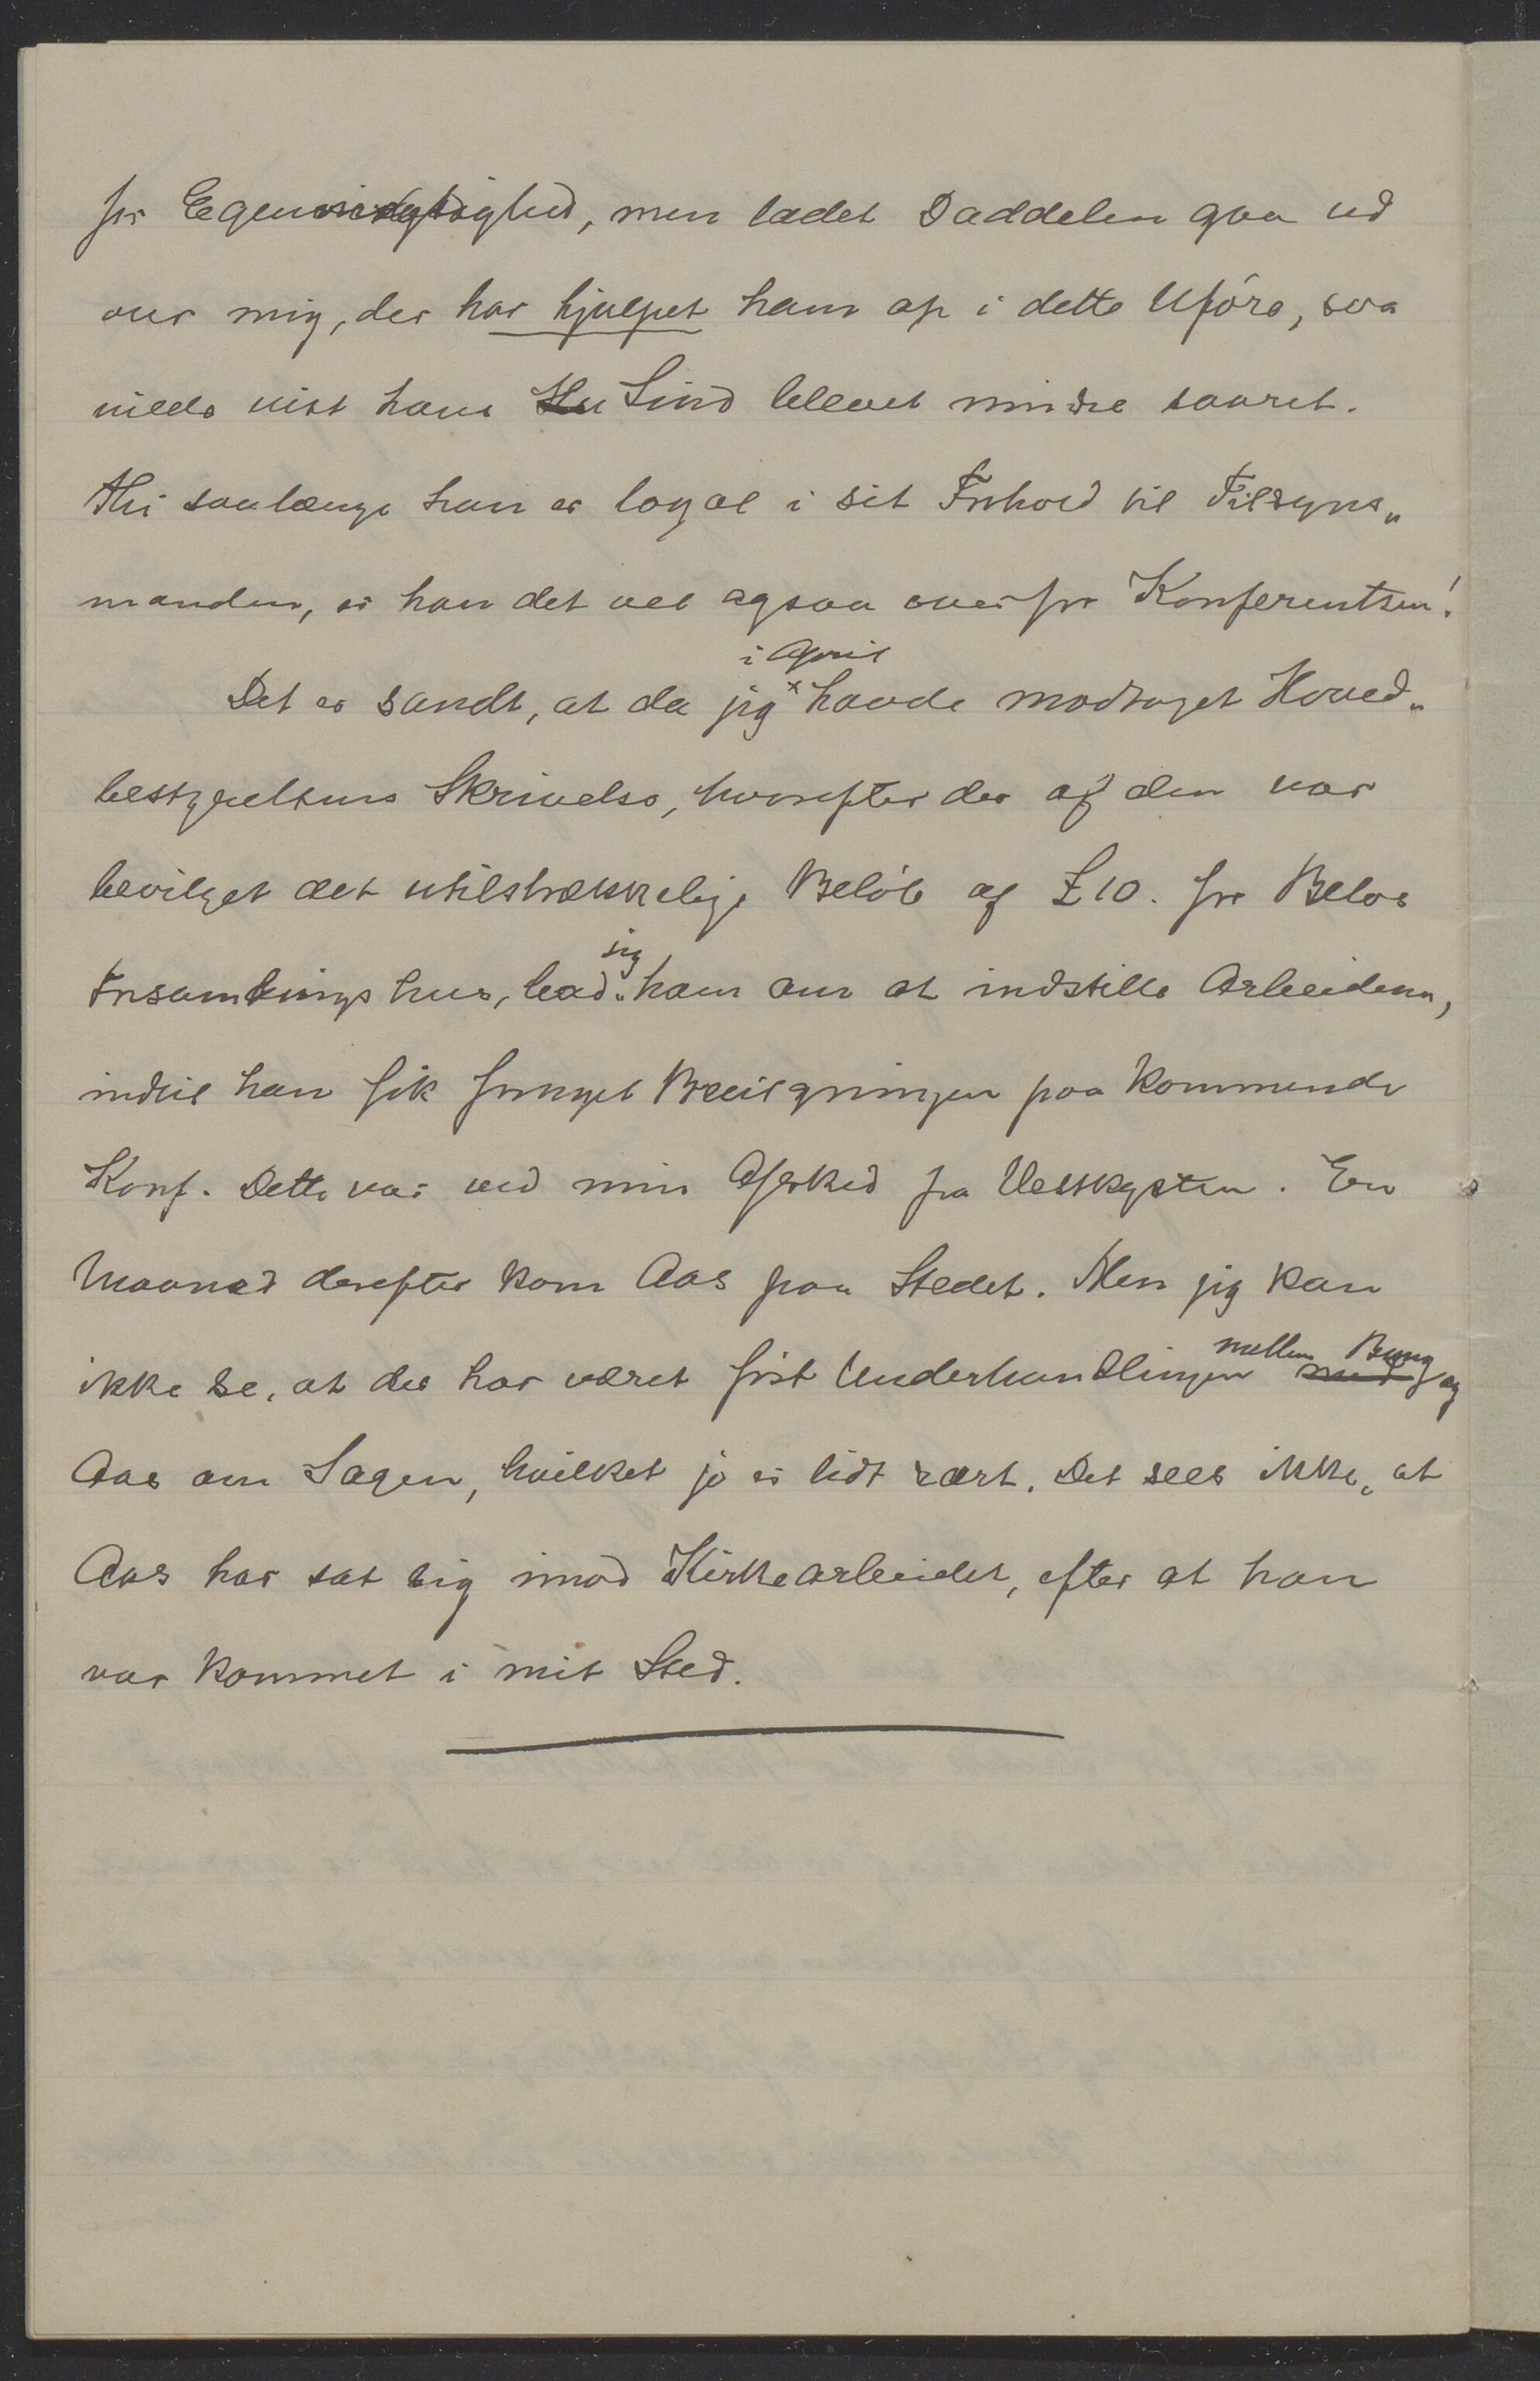 for Egenmægtighed, men ladet Daddelen gaa ud
over mig, der har hjulpet ham op i dette Uføre, saa
vilde vist hans Sind blevet mindre saaret.
Thi saalænge han er loyal i sit Forhold til Tilsyns„
manden, er han det vel ogsaa overfor Konferentsen!
i April
Det er sandt, at da jeg × havde modtaget Hoved„
bestyrelsens Skrivelse, hvorefter der af den var
bevilget det utilstrækkelige Beløb af £10. for Belos
Forsamlingshus, bad jeg ham om at indstille Arbeidene,
indtil han fik forøget Bevilgningen paa kommende
Konf. Dette var ved min Afsked fra Vestkysten. En
Maaned derefter kom Aas paa Stedet. Men jeg kan
ikke se, at der har været ført Underhandlinger mellem Bung og
Aas om Sagen, hvilket jo er lidt rart. Det sees ikke, at
Aas har sat sig imod Kirkearbeidet, efter at han
var kommet i mit Sted.